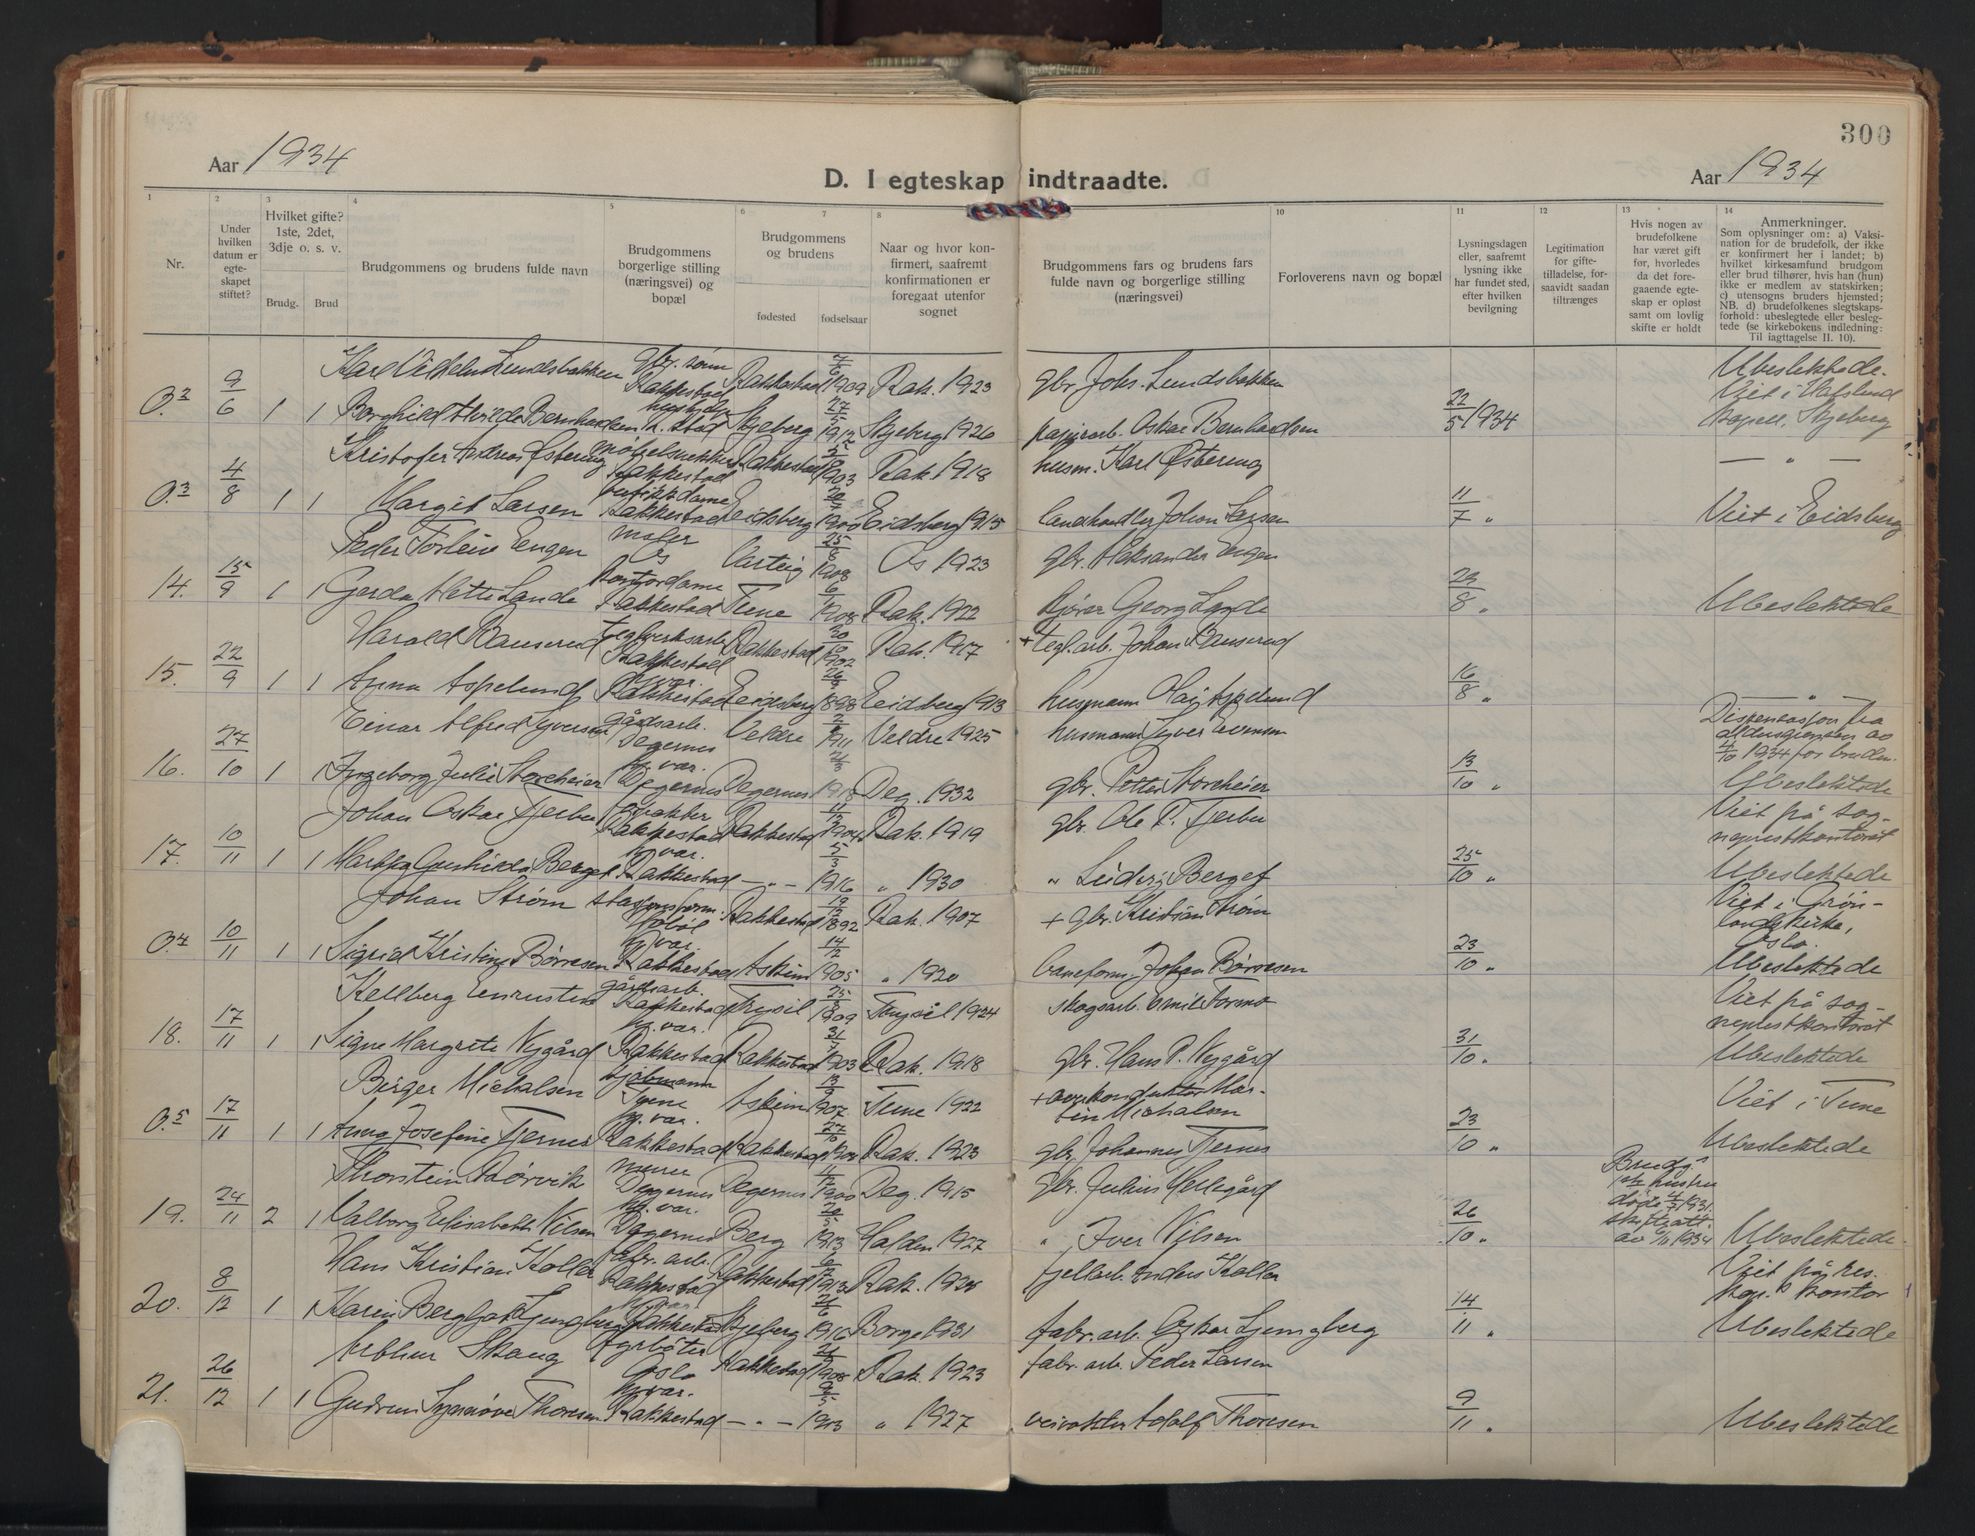 300
Aar 1934
D. I egteskap indtraadte.
Aar 1934
1 2 3 4 5 6 7 8 10 11 12 13 14
Nr.
Under hvilken datum er egteskapet stiftet?
Hvilket gifte? 1ste, 2det, 3dje o. s. v.
Brudg. Brud
Brudgommens og brudens fulde navn
Brudgommens borgerlige stilling (næringsvei) og bopæl
Brudgommens og brudens
fødested fødselsaar
Naar og hvor konfirmert, saafremt konfirmationen er foregaat utenfor sognet
Brudgommens fars og brudens fars fulde navn og borgerlige stilling (næringsvei)
Forloverens navn og bopæl
Lysningsdagen eller, saafremt lysning ikke har fundet sted, efter hvilken bevilgning
Legitimation for giftetilladelse, forsaavidt saadan tiltrænges
Hvis nogen av brudefolkene har været gift før, hvorledes da det foregaaende egteskap er opløst samt om lovlig skifte er holdt
Anmerkninger.
Som oplysninger om: a) Vaksination for de brudefolk, der ikke er konfirmert her i landet; b) hvilket kirkesamfund brudgom eller brud tilhører, hvis han (hun) ikke er medlem av statskirken; c) utensogns bruders hjemsted; NB. d) brudefolkenes slegtskapsforhold: ubeslegtede eller beslegtede (se kirkebokens indledning: Til iagttagelse II. 10).
Karl Vilhelm Lundsbakken gbr. sønn Rakkestad Rakkestad 7/6 1909 Rak. 1923 gbr. Johs. Lundsbakken Ubeslektede.
O.2 9/6 1 1 Borghild Hvilda Bernhardsen Skjeberg 27/5 1912 Skjeberg 1926 papirarb. Oskar Bernhardsen 22/5 1934 Viet i Hafslund kapell, Skjeberg
Kristofer Andreas Østereng møbelsnekker Rakkestad Rakkestad 1903 Rak. 1918 husm. Karl Østereng — " —
O.3 4/8 1 1 Margit Larsen butikkdame Rakkestad Eidsberg 1900 Eidsberg 1915 landhandler Johan Larsen 11/7 " Viet i Eidsberg
Peder Torleiv Engen maler Os Varteig 25/6 1908 Os 1923 gbr. Aleksander Engen
14. 15/9 1 1 Gerda Mette Lande kontordame Rakkestad Tune 1908 Rak. 1922 kjører Georg Lande 29/8 " Ubeslektede
Harald Bauserud teglverksarb. Rakkestad Rakkestad 1902 Rak. 1917 + tegl.arb. Johan Bauserud
15. 22/9 1 1 Anna Aspelund hj.var. Rakkestad Eidsberg 1898 Eidsberg 1913 husmann Olaj Aspelund 16/8 " — " —
Einar Alfred Iversen gårdsarb. Degernes Veldre 1911 Veldre 1925 husmann Iver Evensen Dispensasjon fra aldersgrensen av 4/10 1934 for bruden.
16. 27/10 1 1 Ingeborg Julie Storeheier hj.var. Degernes Degernes 1918 Deg. 1932 gbr. Petter Storeheier 13/10 " Ubeslektede
Johan Oskar Fjerbu Rakkestad Rakkestad 1904 Rak. 1919 gbr. Ole P. Fjerbu Viet på sogneprestkontoret
17. 10/11 1 1 Gunhilda Berget hj.var. Rakkestad — " — 5/3 1916 " 1930 " Berget 25/10 " Ubeslektede
Johan Strøm Hobøl Rakkestad 19/12 1892 Rak. 1907 + gbr. Kristian Strøm Viet i Grønlandskirke, Oslo.
O.4 10/11 1 1 Sigrid Kristine Børresen hj.var. Rakkestad Askim 14/2 1905 " 1920 baneform. Johan Børresen 23/10 " Ubeslektede
Kellberg gårdsarb. Rakkestad Trysil 1909 Trysil 1924 skogsarb. Emil Tormo Viet på sogneprestkontoret
18. 17/11 1 1 Signe Margrete Nygård hj.var. Rakkestad Rakkestad 31/7 1903 Rak. 1918 gbr. Hans P. Nygård 31/10 " Ubeslektede
Birger Michalsen Tune Askim 1907 Tune 1922 + overkonduktør Martin Michalsen Viet i Tune
O.5 17/11 1 1 Anna Josefine Fjernes hj.var. Rakkestad Rakkestad 27/10 1908 Rak. 1923 gbr. Johannes Fjernes 23/10 " Ubeslektede
Thorstein Hørvik murer Degernes Degernes 1900 Deg. 1915 gbr. Julius Hellegård Brudg.s 1ste hustru døde 4/3 1931. skifteatt. av 9/11 1934
19. 24/11 2 1 Valborg Elisabeth Nilsen hj.var. Degernes Berg 20/5 1913 Halden 1927 " Iver Nilsen 26/10 " Ubeslektede
Hans Kristian Koller fabr. arb. Rakkestad Rakkestad 1913 Rak. 1928 fjellarb. Anders Koller Viet på res. kap.s kontor
20. 8/12 1 1 Karin Bergljot Ljungberg hj.var. Rakkestad Skjeberg 21/6 1916 Borge 1931 fabr. arb. Oskar Ljungberg 14/11 " Ubeslektede
Arthur Skaug fyrbøter Oslo Rakkestad 1908 Rak. 1923 fabr. arb. Peder Larsen
21. 26/12 1 1 Gudrun Synnøve Thoresen hj.var. Rakkestad — " — 1913 " 1927 veivokter Adolf Thoresen 9/11 " Ubeslektede